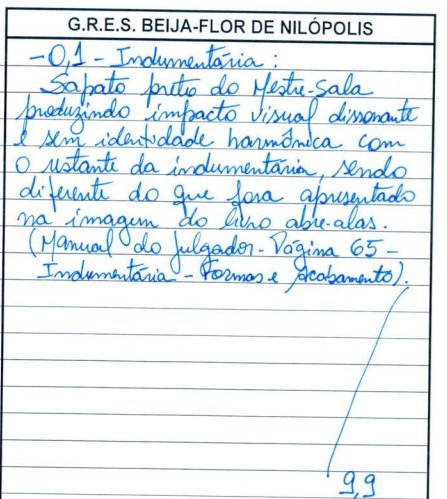 G.R.E.S. BEIJA-FLOR DE NILÓPOLIS
-0,1 - Indumentária :
Sapato preto do Mestre-Sala
produzindo impacto visual dissonante
e sem identidade harmônica com
o restante da indumentária, sendo
diferente do que fora apresentado
na imagem do livro abre-alas.
(Manual do Julgador - Página 65 -
Indumentária - Formas e Acabamento).
9,9